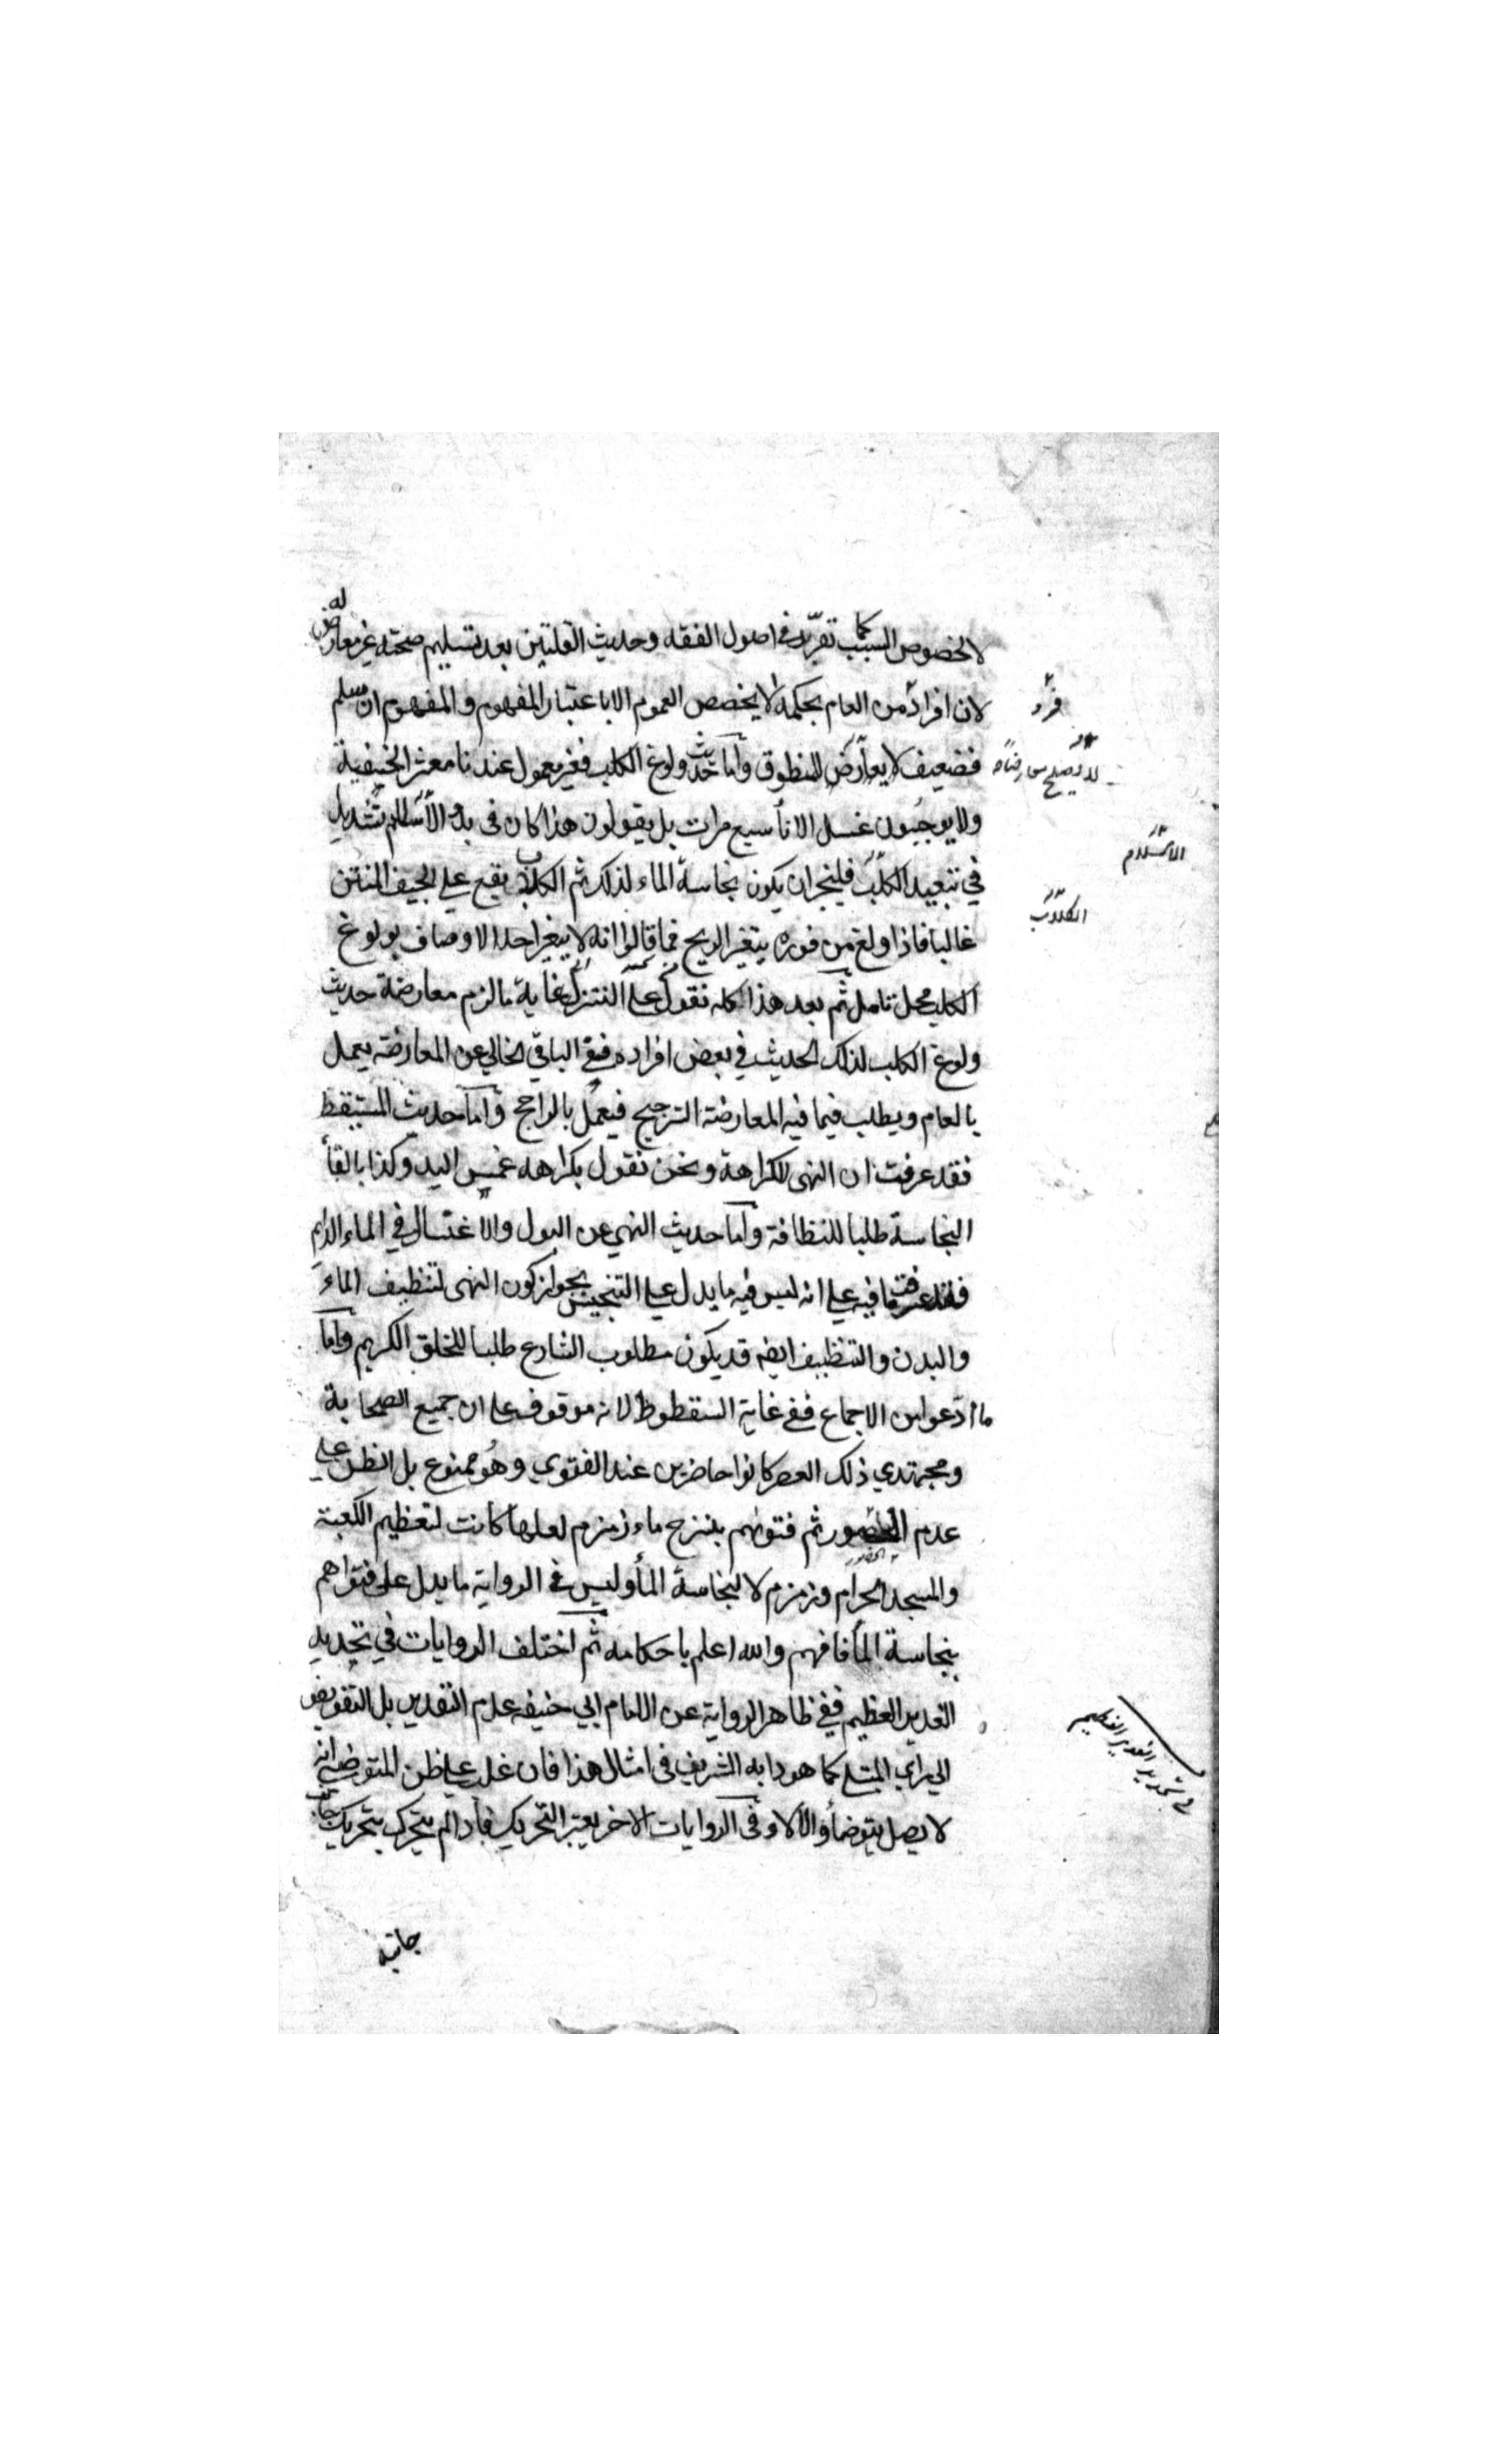 لا لخصوص السبب كما تقرر في اصول الفقه وحديث القلتين بعد تسليم صحته غير معارض له
لان افراد من العام بحكمه لا يخصص العموم الا باعتبار المفهوم والمفهوم ان سلم
فرد
فضعيف لا يعارض المنطوق واما حديث ولوغ الكلب فغير معمول عندنا معشر الحنيفية
ولا يوجبون غسل الاناء سبع مرات بل يقولون هذا كان في بدء الاسلام تشديد
الاسلام
في تبعيد الكلب فليجز ان يكون نجاسة الماء لذلك ثم الكلاب يقع علي الجيف المنتن
الكلاب
غالبا فاذا ولغ من فوره يتغير الريح فما قالوا انه لا يتغير احد الاوصاف بولوغ
الكلب محل تامل ثم بعد هذا كله نقول علي التنزل غاية ما لزم معارضة حديث
ولوغ الكلب لذلك الحديث في بعض افراده فبقي الباقي الخالي عن المعارضة يعمل
بالعام ويطلب فيما فيه المعارضة الترجيح فيعمل بالراجح واما حديث المستيقظ
فقد عرفت ان النهى للكراهة ونحن نقول بكراهه غمس اليد وكذا بالقاء
النجاسة طلبا للنظافة واما حديث النهي عن البول والاغتسال في الماء الدايم
فقد عرفت ما فيه علي انه ليس فيه ما يدل علي التنجيس بجواز كون النهى لتنظيف الماء
والبدن والتنظيف ايضه قد يكون مطلوب الشارع طلبا للخلق الكريم واما
ما ادعوا من الاجماع ففي غاية السقطوط لانه موقوف علي ان جميع الصحابة
ومجتهدي ذلك العصر كانوا حاضرين عند الفتوي وهو ممنوع بل الظن علي
عدم الحضور ثم فتوىهم بنزح ماء زمزم لعلها كانت لتعظيم الكعبة
الحضور
والمسجد الحرام وزمزم لا لنجاسة الماء وليس في الرواية ما يدل على فتواهم
بنجاسة الماء فافهم والله اعلم باحكامه ثم اختلف الروايات في تحديد
الغدير العظيم ففي ظاهر الرواية عن الامام ابي حنيفه عدم التقدير بل التفويض
في تحديد الغدير العظيم
الي راي المبتلي كما هو دابه الشريف في امثال هذا فان غلب علي ظن المتوضي انه
لا يصل يتوضأ والا لا وفي الروايات الاخر يعتبر التحريك فاذا لم يتحرك بتحريك جانب
جانبه